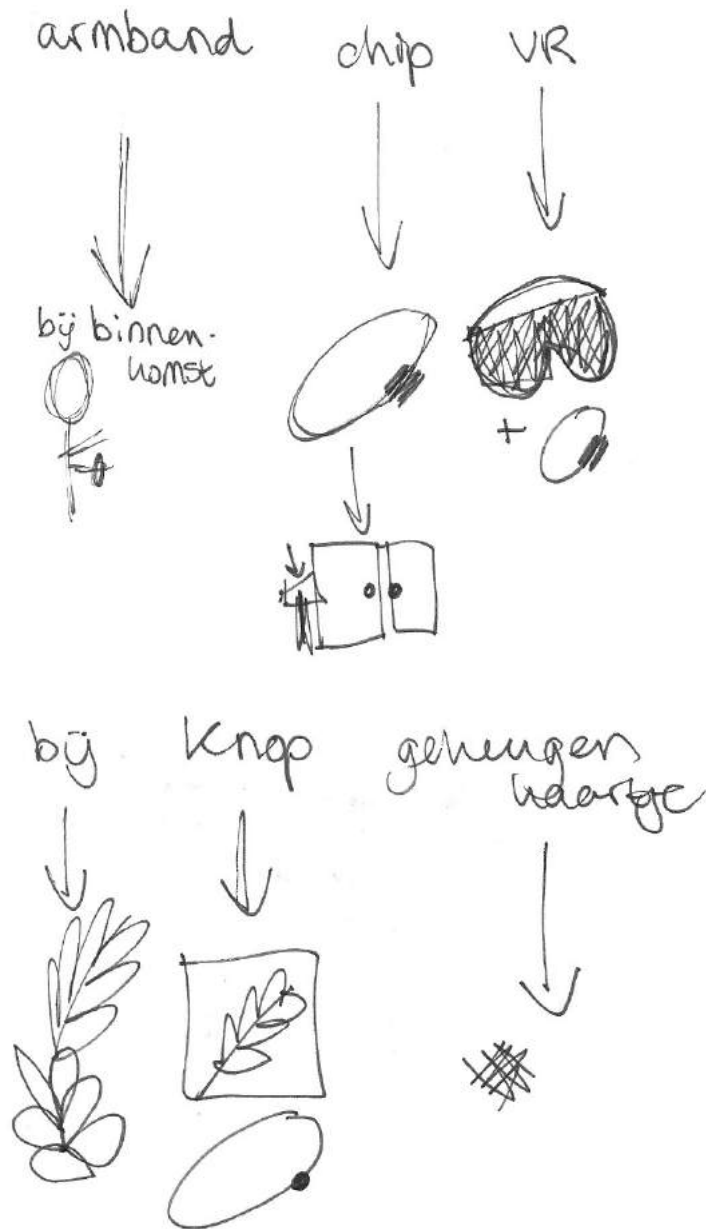 armband
chip
VR
bij binnen-
komst
+
bij
Knop
geheugen
kaartje